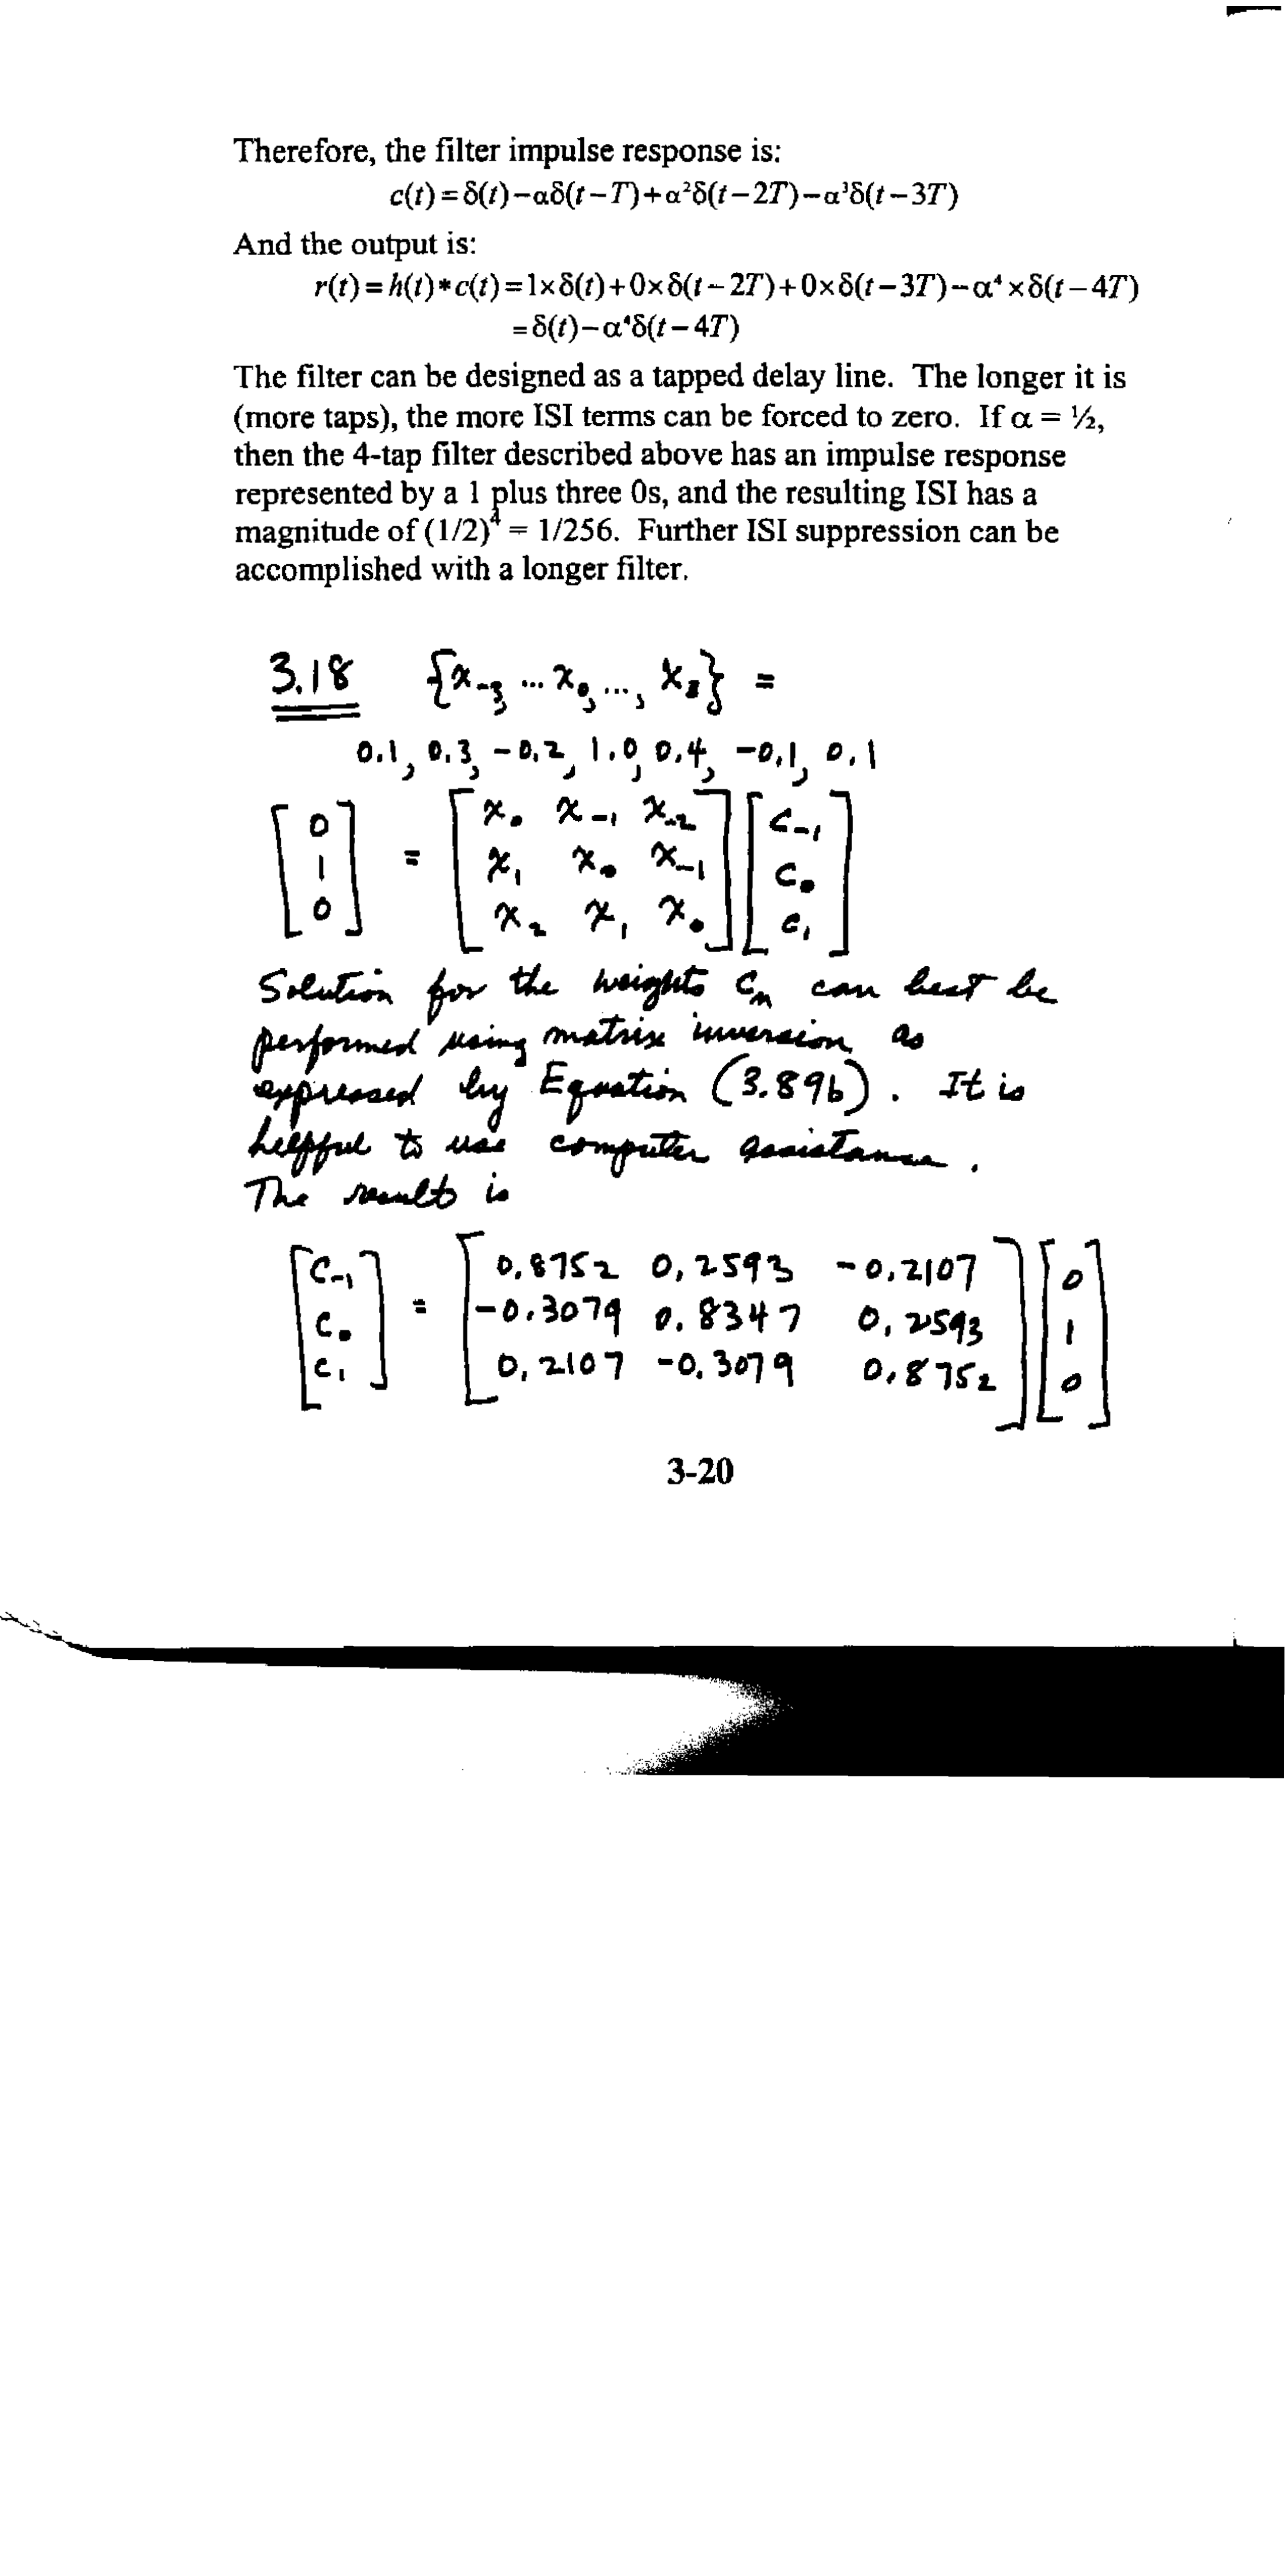 Therefore, the filter impulse response is:
c(t) = δ(t) − αδ(t − T) + α²δ(t − 2T) − α³δ(t − 3T)
And the output is:
r(t) = h(t) * c(t) = 1 × δ(t) + 0 × δ(t − 2T) + 0 × δ(t − 3T) − α⁴ × δ(t − 4T)
= δ(t) − α⁴δ(t − 4T)
The filter can be designed as a tapped delay line. The longer it is
(more taps), the more ISI terms can be forced to zero. If α = ½,
then the 4-tap filter described above has an impulse response
represented by a 1 plus three 0s, and the resulting ISI has a
magnitude of (1/2)⁴ = 1/256. Further ISI suppression can be
accomplished with a longer filter.
3.18 {x₋₃ ... x₀, ..., x₃} =
0.1, 0.3, −0.2, 1.0, 0.4, −0.1, 0.1
0 x₀ x₋₁ x₋₂ c₋₁
1 = x₁ x₀ x₋₁ c₀
0 x₂ x₁ x₀ c₁
Solution for the weights cₙ can best be
performed using matrix inversion as
expressed by Equation (3.89b). It is
helpful to use computer assistance.
The result is
c₋₁ 0.8752 0.2593 −0.2107 0
c₀ = −0.3079 0.8347 0.2593 1
c₁ 0.2107 −0.3079 0.8752 0
3-20